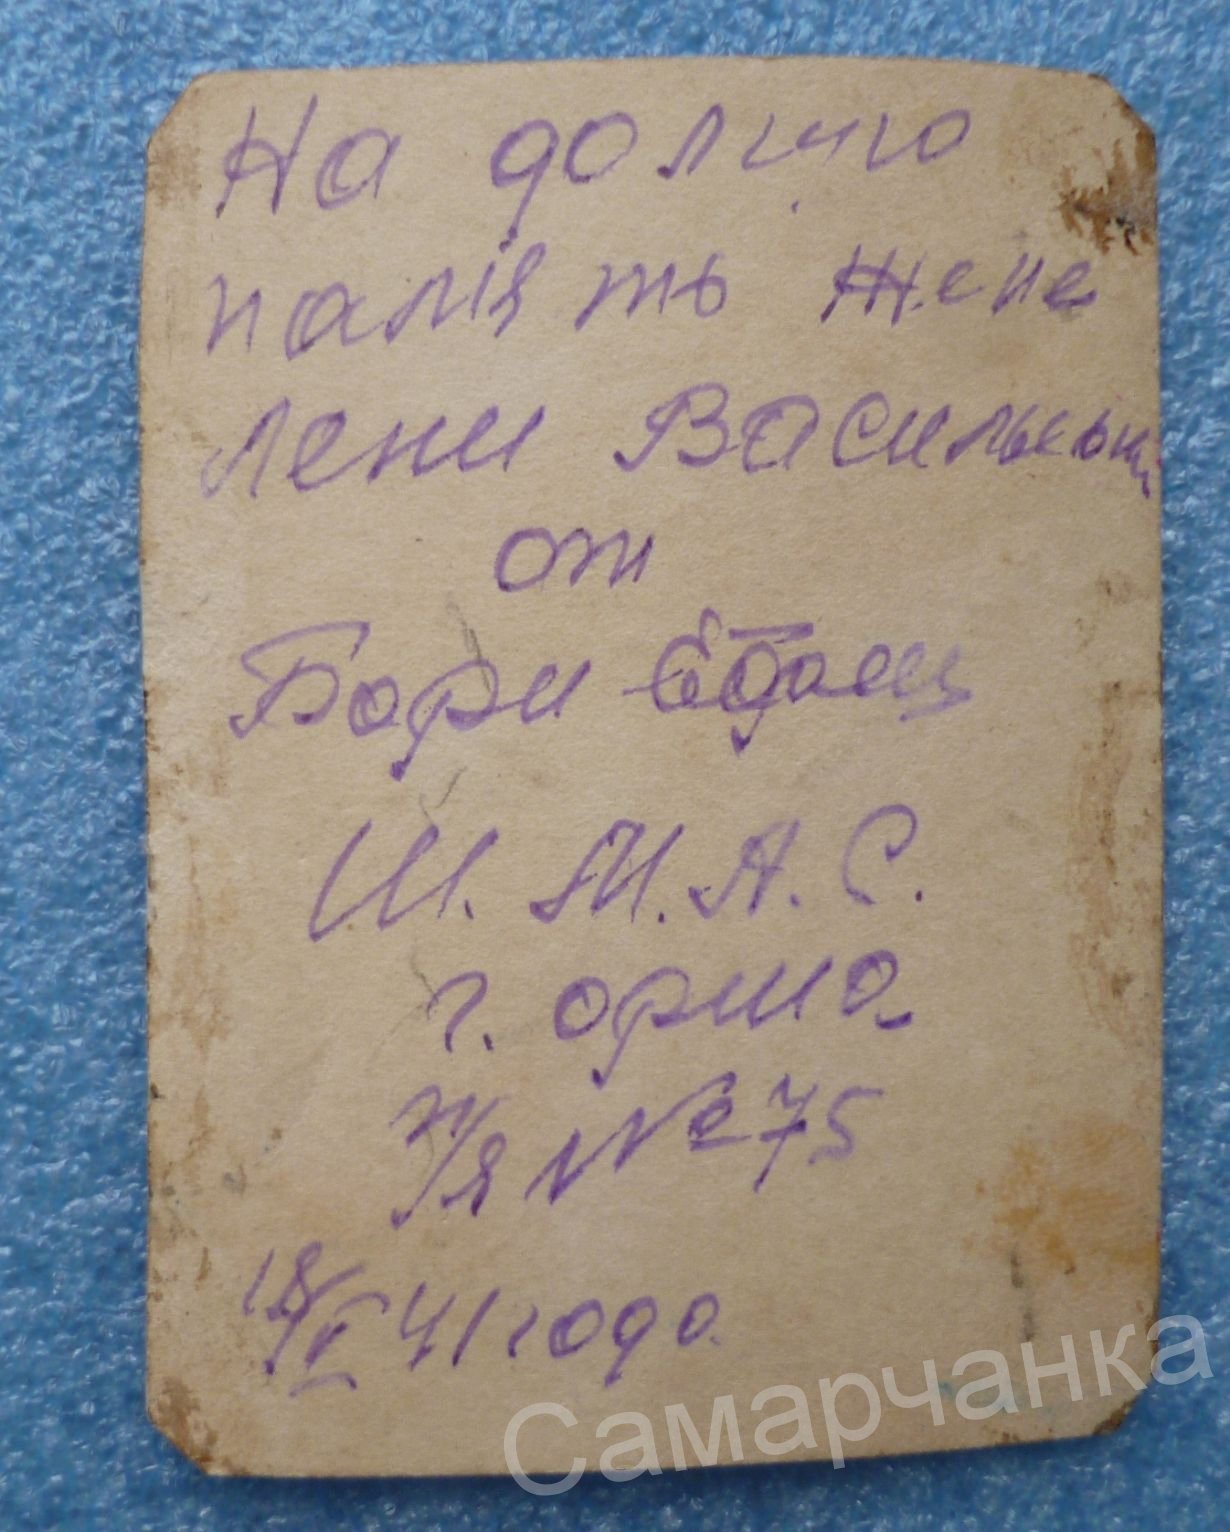 На долгую
память Жене
Лени Васильевн
от
Бори
Ш. М. А. С.
г. Орша
п/я № 75
18/V 41 года
Самарчанка